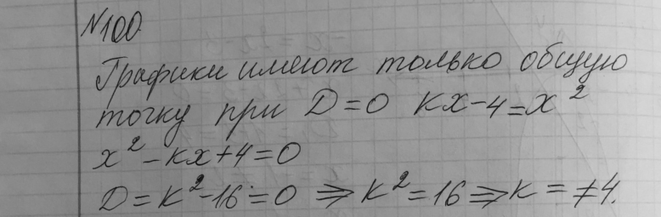 №100
Графики имеют только общую
точку при D=0 kx-4=x²
x²-kx+4=0
D=k²-16=0 ⇒ k²=16 ⇒ k=≠4.